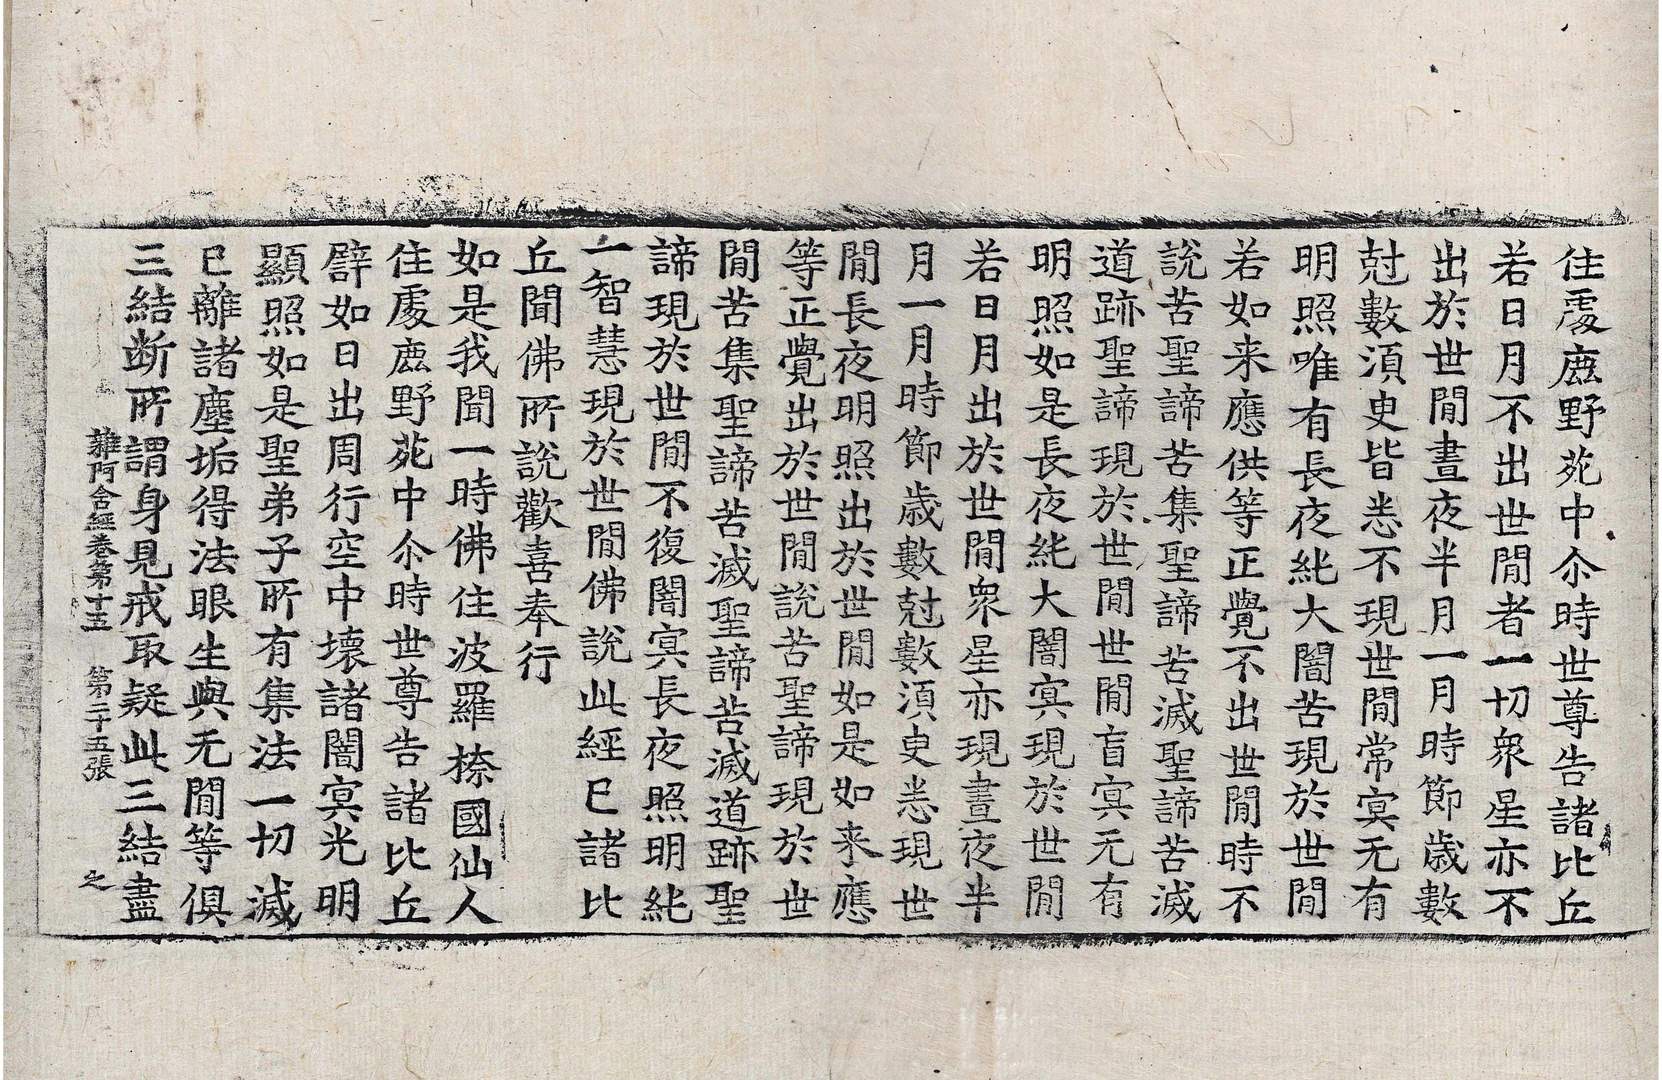 住處鹿野苑中尒時世尊告諸比丘
若日月不出世閒者一切衆星亦不
出於世閒晝夜半月一月時節歲數
尅數須臾皆悉不現世閒常㝠无有
明照唯有長夜純大闇苦現於世閒
若如来應供等正覺不出世閒時不
說苦聖諦苦集聖諦苦滅聖諦苦滅
道跡聖諦現於世閒世閒盲㝠无有
明照如是長夜純大闇㝠現於世閒
若日月出於世閒衆星亦現晝夜半
月一月時節歲數尅數須臾悉現世
閒長夜明照出於世閒如是如来應
等正覺出於世閒說苦聖諦現於世
閒苦集聖諦苦滅聖諦苦滅道跡聖
諦現於世閒不復闇㝠長夜照明純
一智慧現於世閒佛說此經已諸比
丘聞佛所說歡喜奉行
如是我聞一時佛住波羅㮈國仙人
住處鹿野苑中尒時世尊告諸比丘
譬如日出周行空中壞諸闇㝠光明
顯照如是聖弟子所有集法一切滅
已離諸塵垢得法眼生與无閒等俱
三結断所謂身見戒取疑此三結盡
雜阿含經卷第十五 第二十五張 之